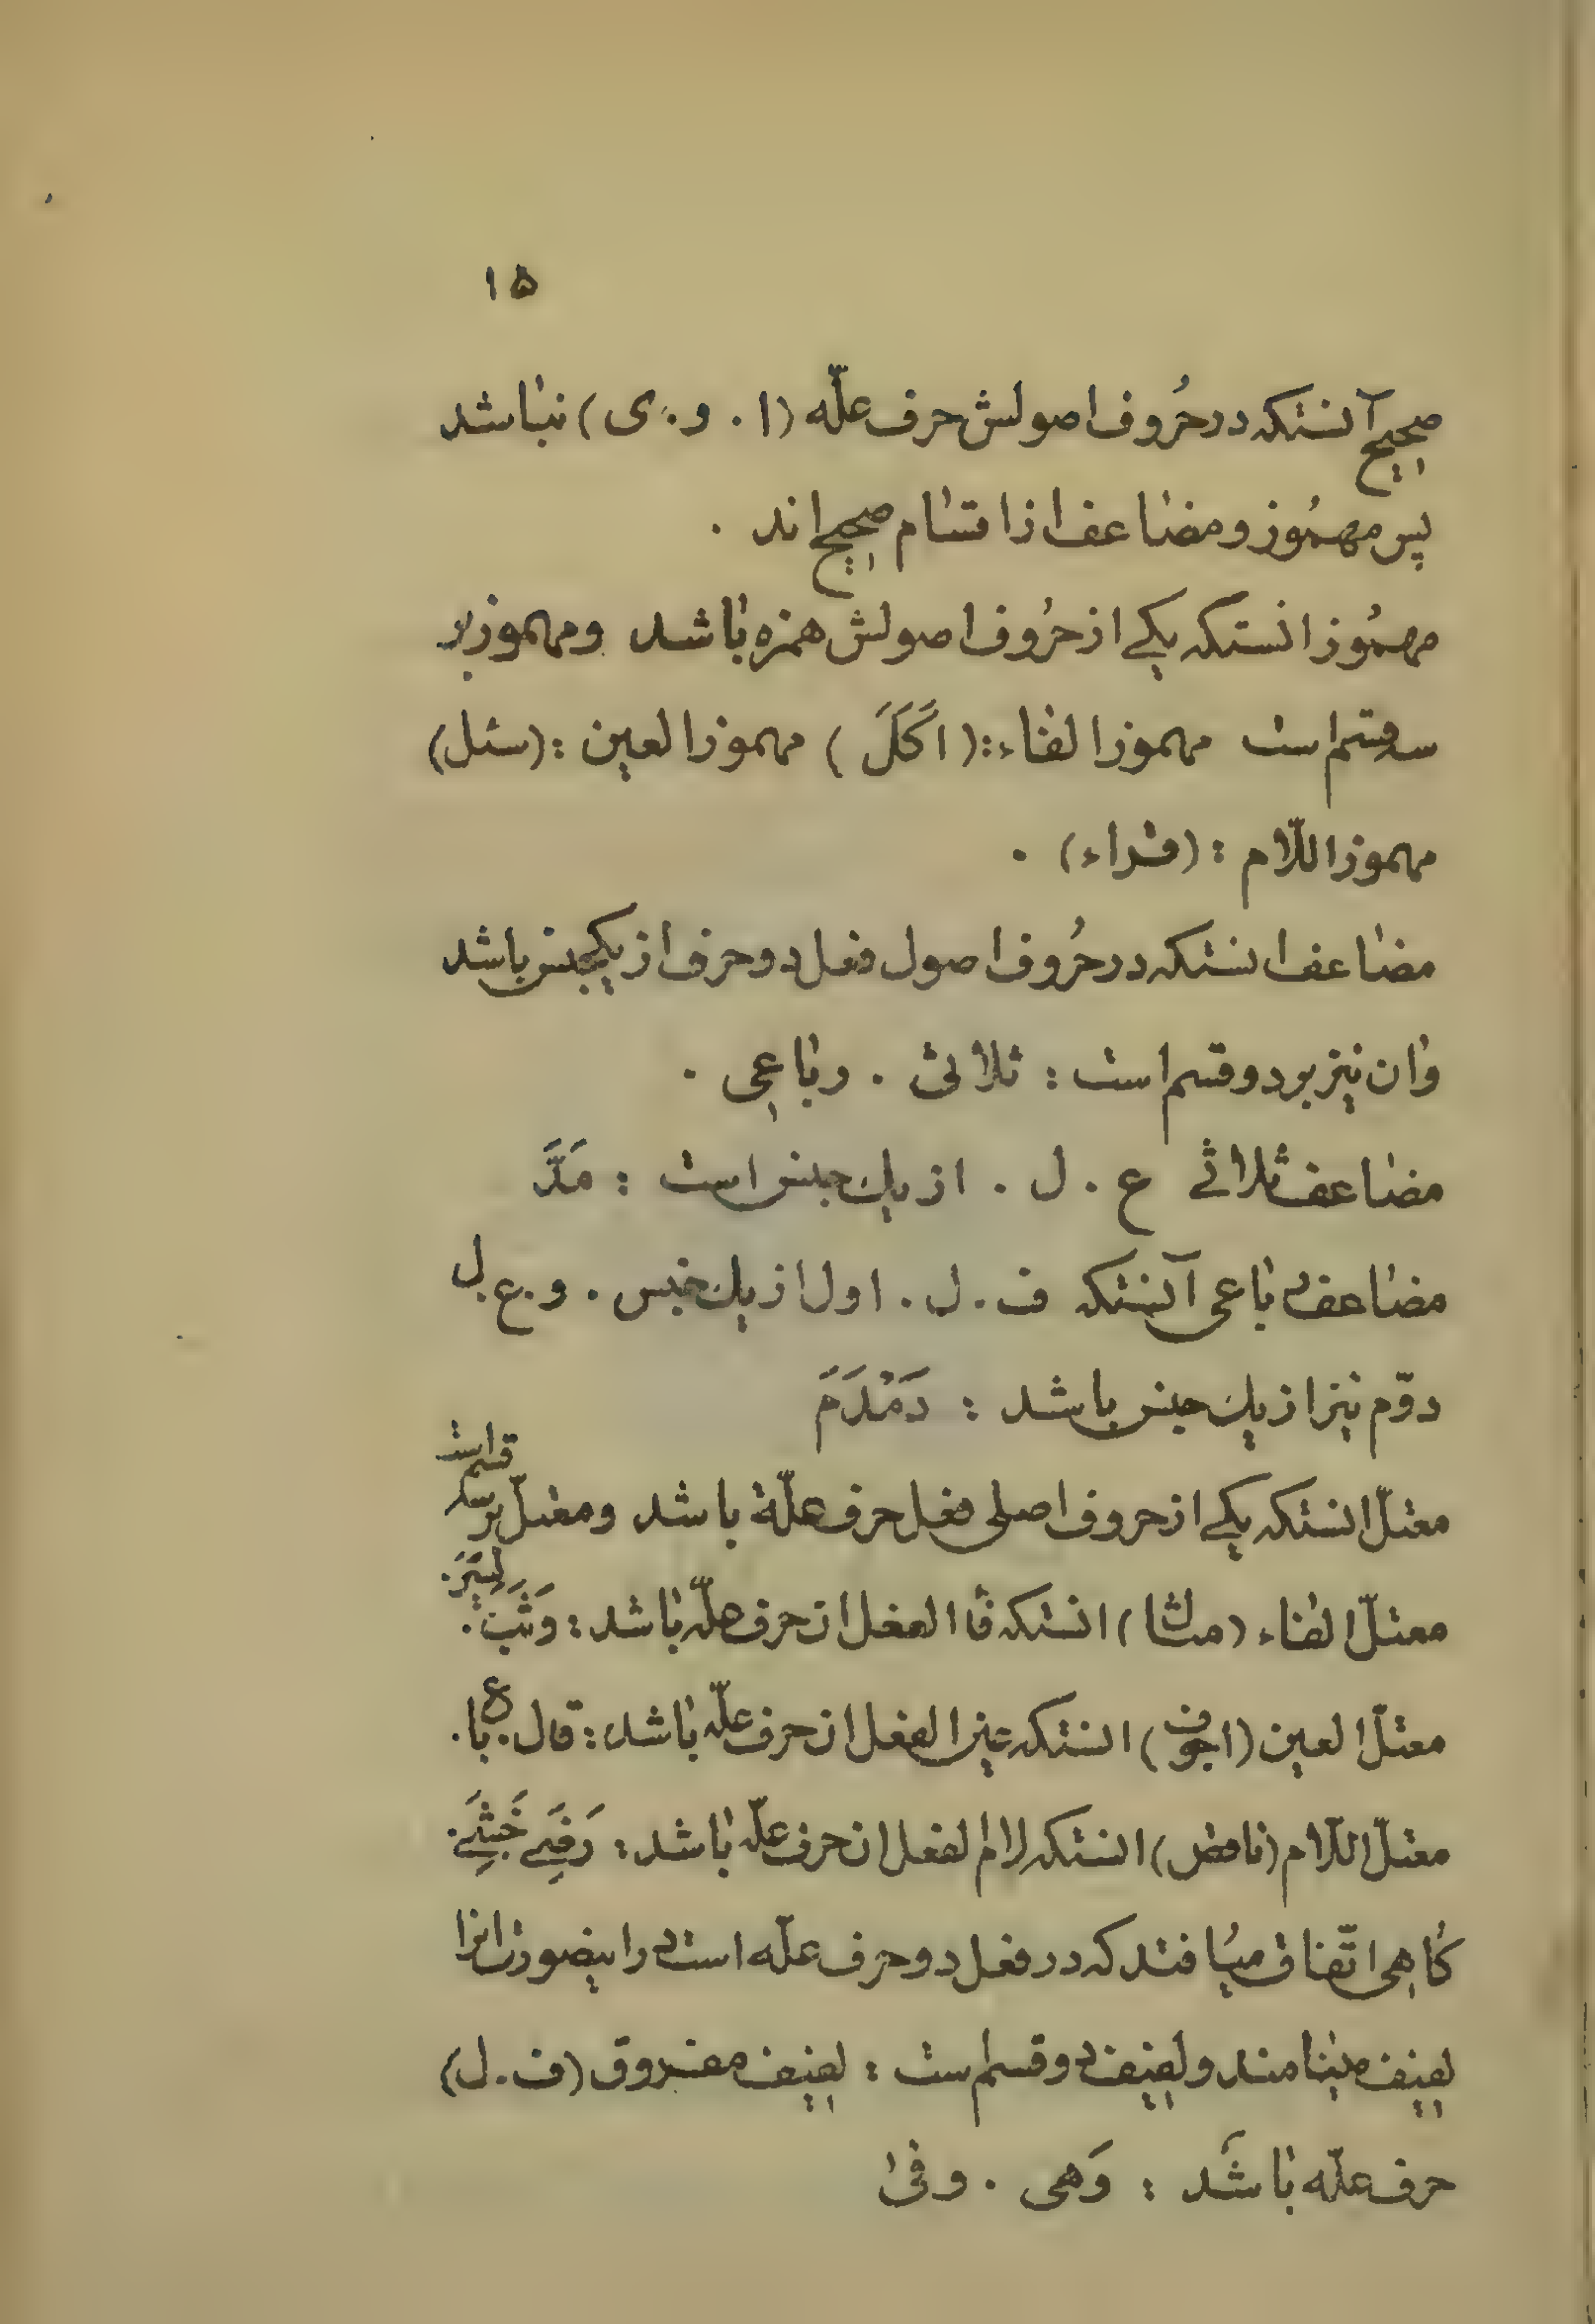 ۱۵
صحیح آنستکه در حُروف اصولش حرف علّه (ا . و . ی) نباشد
پس مهمُوز و مضاعف از اقسام صحیح اند .
مهمُوز انستکه یکے از حرُوف اصولش همزه باشد ومهموز بر
سه قسم است مهموز الفاء : (اَکَلَ) مهموز العین : (سئل)
مهموز اللّام : (قراء) .
مضاعف انستکه در حُروف اصول فعل دو حرف از یکجنس باشد
وان نیز بر دو قسم است : ثلاثی . رباعی .
مضاعف ثلاثے ع . ل . از یك جنس است : مَدَّ
مضاعف رباعی آنستکه ف . ل . اول از یك جنس . و . ع . ل
دوّم نیز از یك جنس باشد : دَمْدَمَ
معتلّ انستکه یکے از حروف اصلی فعل حرف علّة باشد ومعتلّ بر سه قسم است
معتلّ الفاء (مثال) انستکه فاٴ الفعل ان حرف علّه باشد : وَثَبَ .
معتلّ العین (اجوف) انستکه عین الفعل ان حرف علّه باشد : قال . باع .
معتلّ اللّام (ناقص) انستکه لام الفعل ان حرف علّه باشد : خَشِیَ .
گاهی اتّفاق میافتد که در فعل دو حرف علّه است در اینصورت انرا
لفیف مینامند ولفیف دو قسم است : لفیف مفروق (ف . ل)
حرف علّه باشد : وَهی . وفی